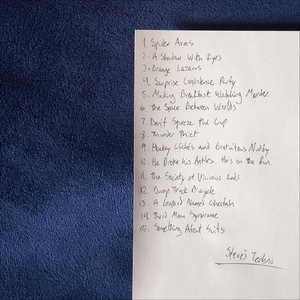 1. Spider Arms
2. A Shadow With Eyes
3. Orange Lazarus
4. Surprise Convenience Party
5. Making Breakfast Watching Murder
6. The Space Between Worlds
7. Don't Squeeze the Cup
8. Thunder Thief
9. Hockey Clichés and Gratuitous Nudity
10. He Broke his Ankles. He's on the Run
11. The Society of Vicious Lads
12. Dump Truck Bicycle
13. A Leopard Named Cheetah
14. Third Man Syndrome
15. Something About Suits
Steve's